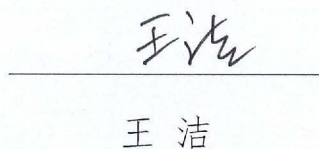 王洁
王 洁